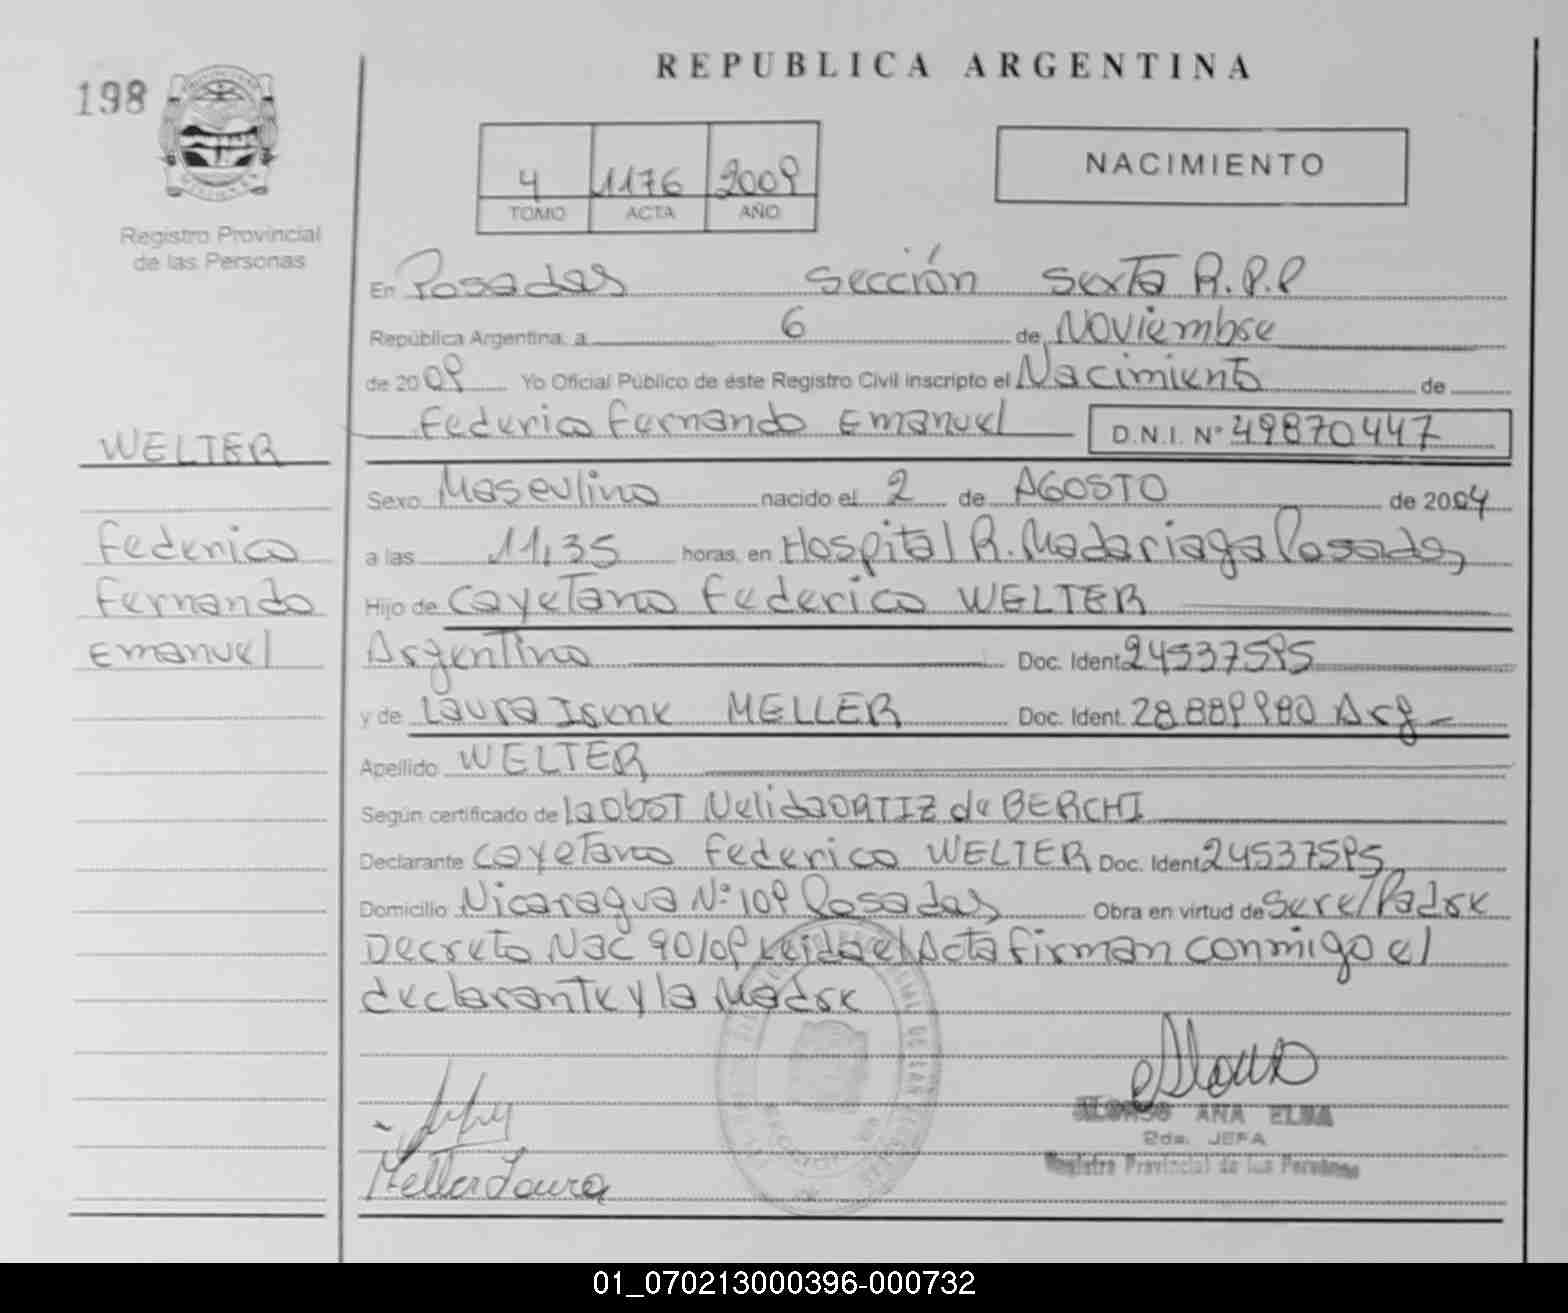 REPUBLICA ARGENTINA
198
4 1176 2009
TOMO ACTA AÑO
NACIMIENTO
Registro Provincial
de las Personas
En Posadas Sección Sexta R.P.P
República Argentina, a 6 de Noviembre
de 2009 Yo Oficial Público de éste Registro Civil inscripto el Nacimiento de
Federico Fernando Emanuel D.N.I. N° 49870447
WELTER
Sexo Masculino nacido el 2 de AGOSTO de 2004
Federico
a las 11,35 horas, en Hospital R. Madariaga Posadas
Fernando
Hijo de Cayetano Federico WELTER
Emanuel
Argentino Doc. Ident. 24537595
y de Laura Irene MELLER Doc. Ident. 28889980 Arg
Apellido WELTER
Según certificado de la Obst Nelida ORTIZ de BERCHI
Declarante Cayetano Federico WELTER Doc. Ident. 24537595
Domicilio Nicaragua N° 109 Posadas Obra en virtud de Ser el Padre
Decreto Nac 90/09 Leida el Acta firman conmigo el
declarante y la Madre
Meller Laura
ALONSO ANA ELBA
2da. JEFA
Registro Provincial de las Personas
01_070213000396-000732